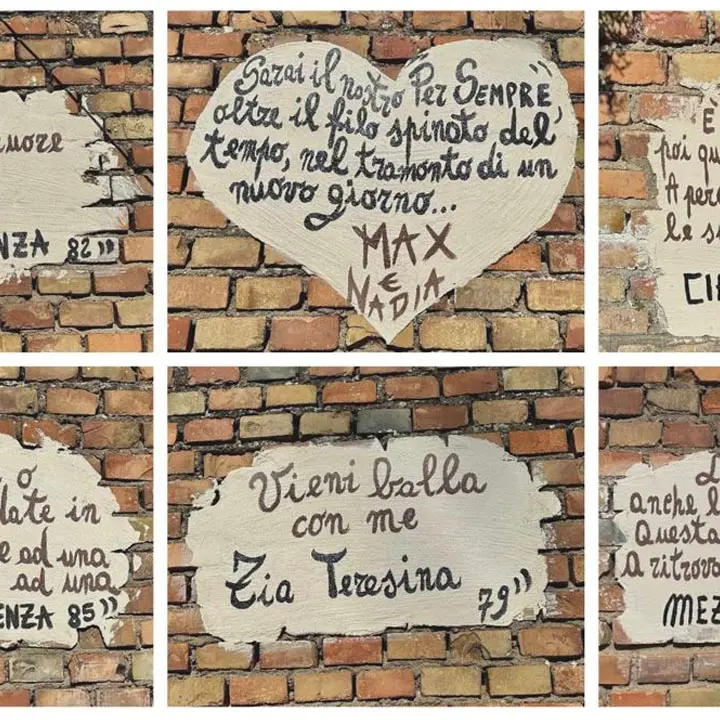 uore
NZA 82"
Sarai il nostro Per SEMPRE,
oltre il filo spinato del
tempo, nel tramonto di un
nuovo giorno...
MAX
E
NADIA
È
poi qu
A per
le s
CI
o
date in
e ad una
ad una
ENZA 85"
Vieni balla
con me
Zia Teresina
79"
anche l
Questa
A ritrova
MEZ